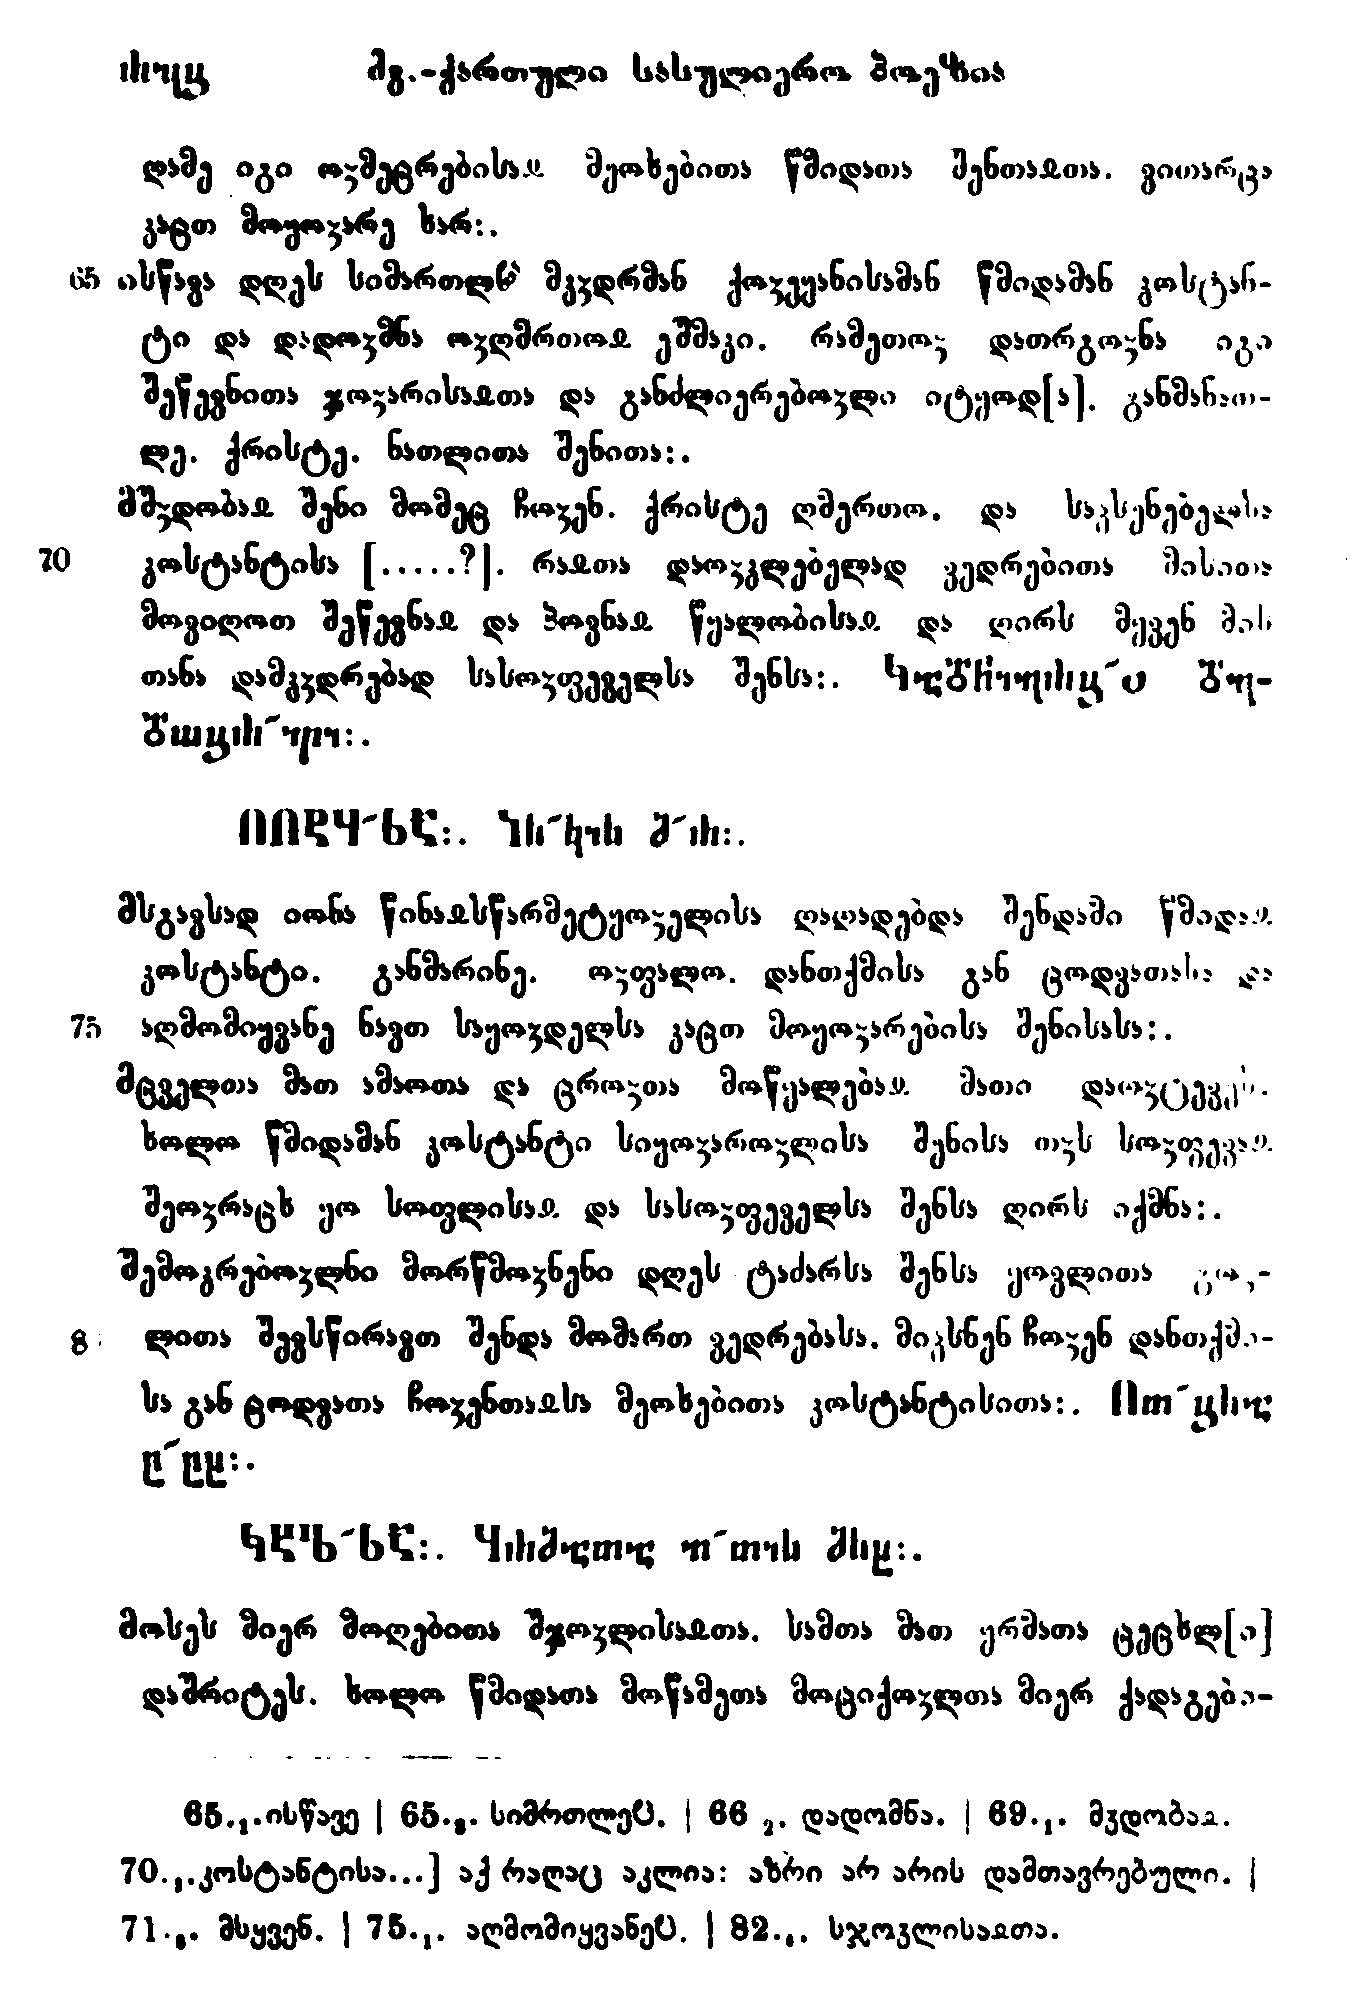 მგ.-ქართული სასულიერო პოეზია
ღამე იგი ოჳმეცრებისაჲ მეოხებითა წმიდათა შენთაჲთა. ვითარცა
კაცთ მოყოჳარე ხარ:.
65 ისწავა დღეს სიმართლჱ მკჳდრმან ქოჳეყანისამან წმიდამან კოსტან-
ტი და დადოჳმნა ოჳღმრთოჲ ეშმაკი. რამეთოჳ დათრგოჳნა იგი
შეწევნითა ჯოჳარისაჲთა და განძლიერებოჳლი იტყოდ[ა]. განმანათ-
ლე. ქრისტე. ნათლითა შენითა:.
მშჳდობაჲ შენი მომეც ჩოჳენ. ქრისტე ღმერთო. და საკსენებელსა
70 კოსტანტისა [.....?]. რაჲთა დაოჳკლებელად ვედრებითა მისითა
მოვიღოთ შეწევნაჲ და პოვნაჲ წყალობისაჲ და ღირს მყვენ მის
თანა დამკჳდრებად სასოჳფეველსა შენსა:.
მსგავსად იონა წინაჲსწარმეტყოჳელისა ღაღადებდა შენდამი წმიდაჲ
კოსტანტი. განმარინე. ოჳფალო. დანთქმისა გან ცოდვათასა და
75 აღმომიყვანე ნავთ საყოჳდელსა კაცთ მოყოჳარებისა შენისასა:.
მცველთა მათ ამაოთა და ცროჳთა მოწყალებაჲ მათი დაოჳტევეს.
ხოლო წმიდამან კოსტანტი სიყოჳაროჳლისა შენისა თჳს სოჳფევაჲ
შეოჳრაცხ ყო სოფლისაჲ და სასოჳფეველსა შენსა ღირს იქმნა:.
შემოკრებოჳლნი მორწმოჳნენი დღეს ტაძარსა შენსა ყოვლითა გოჳ-
ლითა შევსწირავთ შენდა მომართ ვედრებასა. მიკსნენ ჩოჳენ დანთქმი-
სა გან ცოდვათა ჩოჳენთაჲსა მეოხებითა კოსტანტისითა:.
მოსეს მიერ მოღებითა შჯოჳლისაჲთა. სამთა მათ ყრმათა ცეცხლ[ი]
დაშრიტეს. ხოლო წმიდათა მოწამეთა მოციქოჳლთა მიერ ქადაგები-
65.₁. ისწავე | 65.₃. | 66 ₂. დადომნა. | 69.₁. მჯდობაჲ.
70.₁. კოსტანტისა...] აქ რაღაც აკლია: აზრი არ არის დამთავრებული. |
71.₈. მსყვენ. | 75.₁. | 82.₄. სჯოჳლისაჲთა.